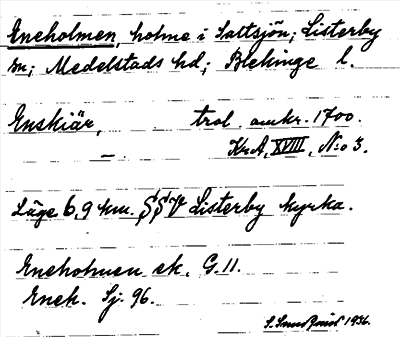 Eneholmen, holme i Saltsjön; Listerby
sn; Medelstads hd; Blekinge l.
Enskiär, trol. omkr. 1700.
— Kr.A, XVIII, N:o 3.
Läge 6,9 km. SSV Listerby kyrka.
Eneholmen ek. G.11.
Enek. Sj. 96.
1936.